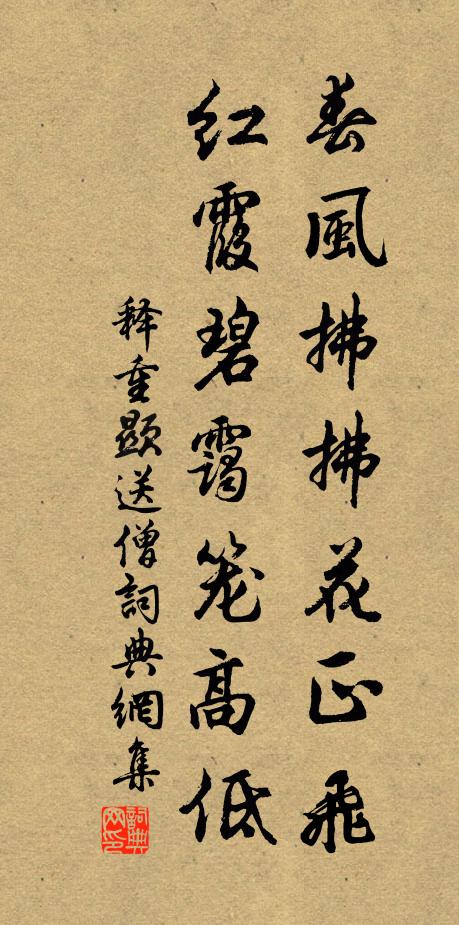 春風拂拂花正飛
紅霞碧靄笼高低
释重顯送僧詞典網集
詞典网印